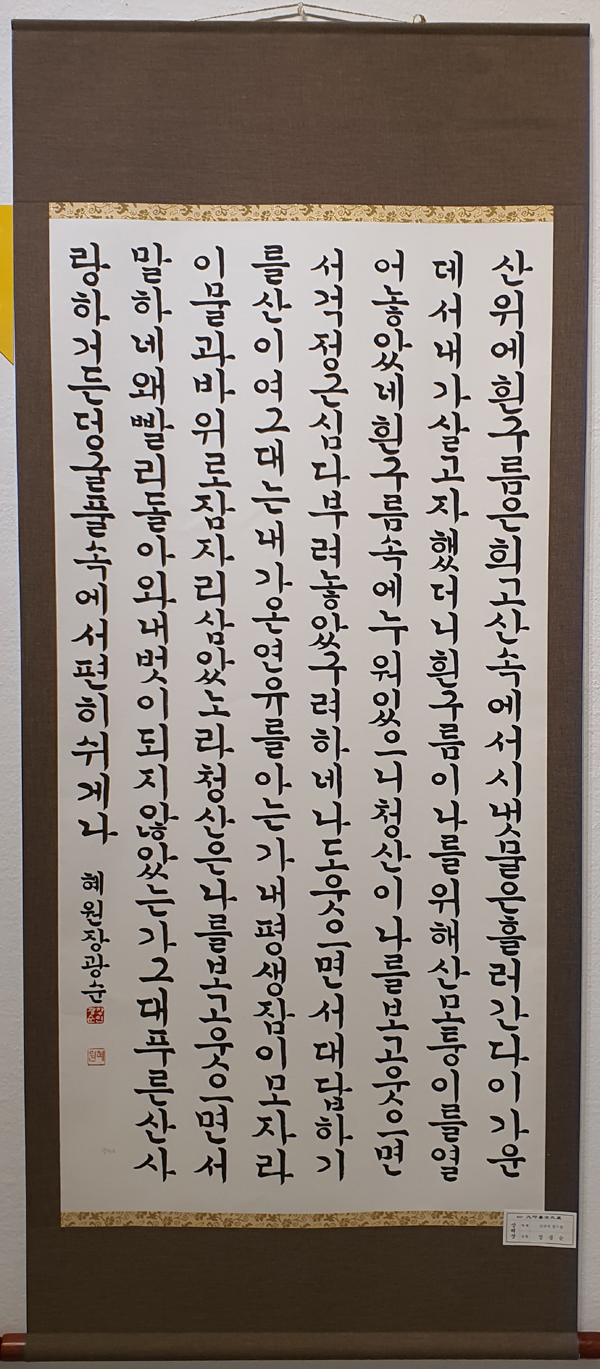 산위에흰구름은희고산속에서시냇물은흘러간다이가운
데서내가살고자했더니흰구름이나를위해산모퉁이를열
어놓았네흰구름속에누워있으니청산이나를보고웃으면
서걱정근심다부려놓았구려하네나도웃으면서대답하기
를산이여그대는내가온연유를아는가내평생잠이모자라
이물과바위로잠자리삼았노라청산은나를보고웃으면서
말하네왜빨리돌아와내벗이되지않았는가그대푸른산사
랑하거든덩굴풀속에서편히쉬게나
혜원장광순